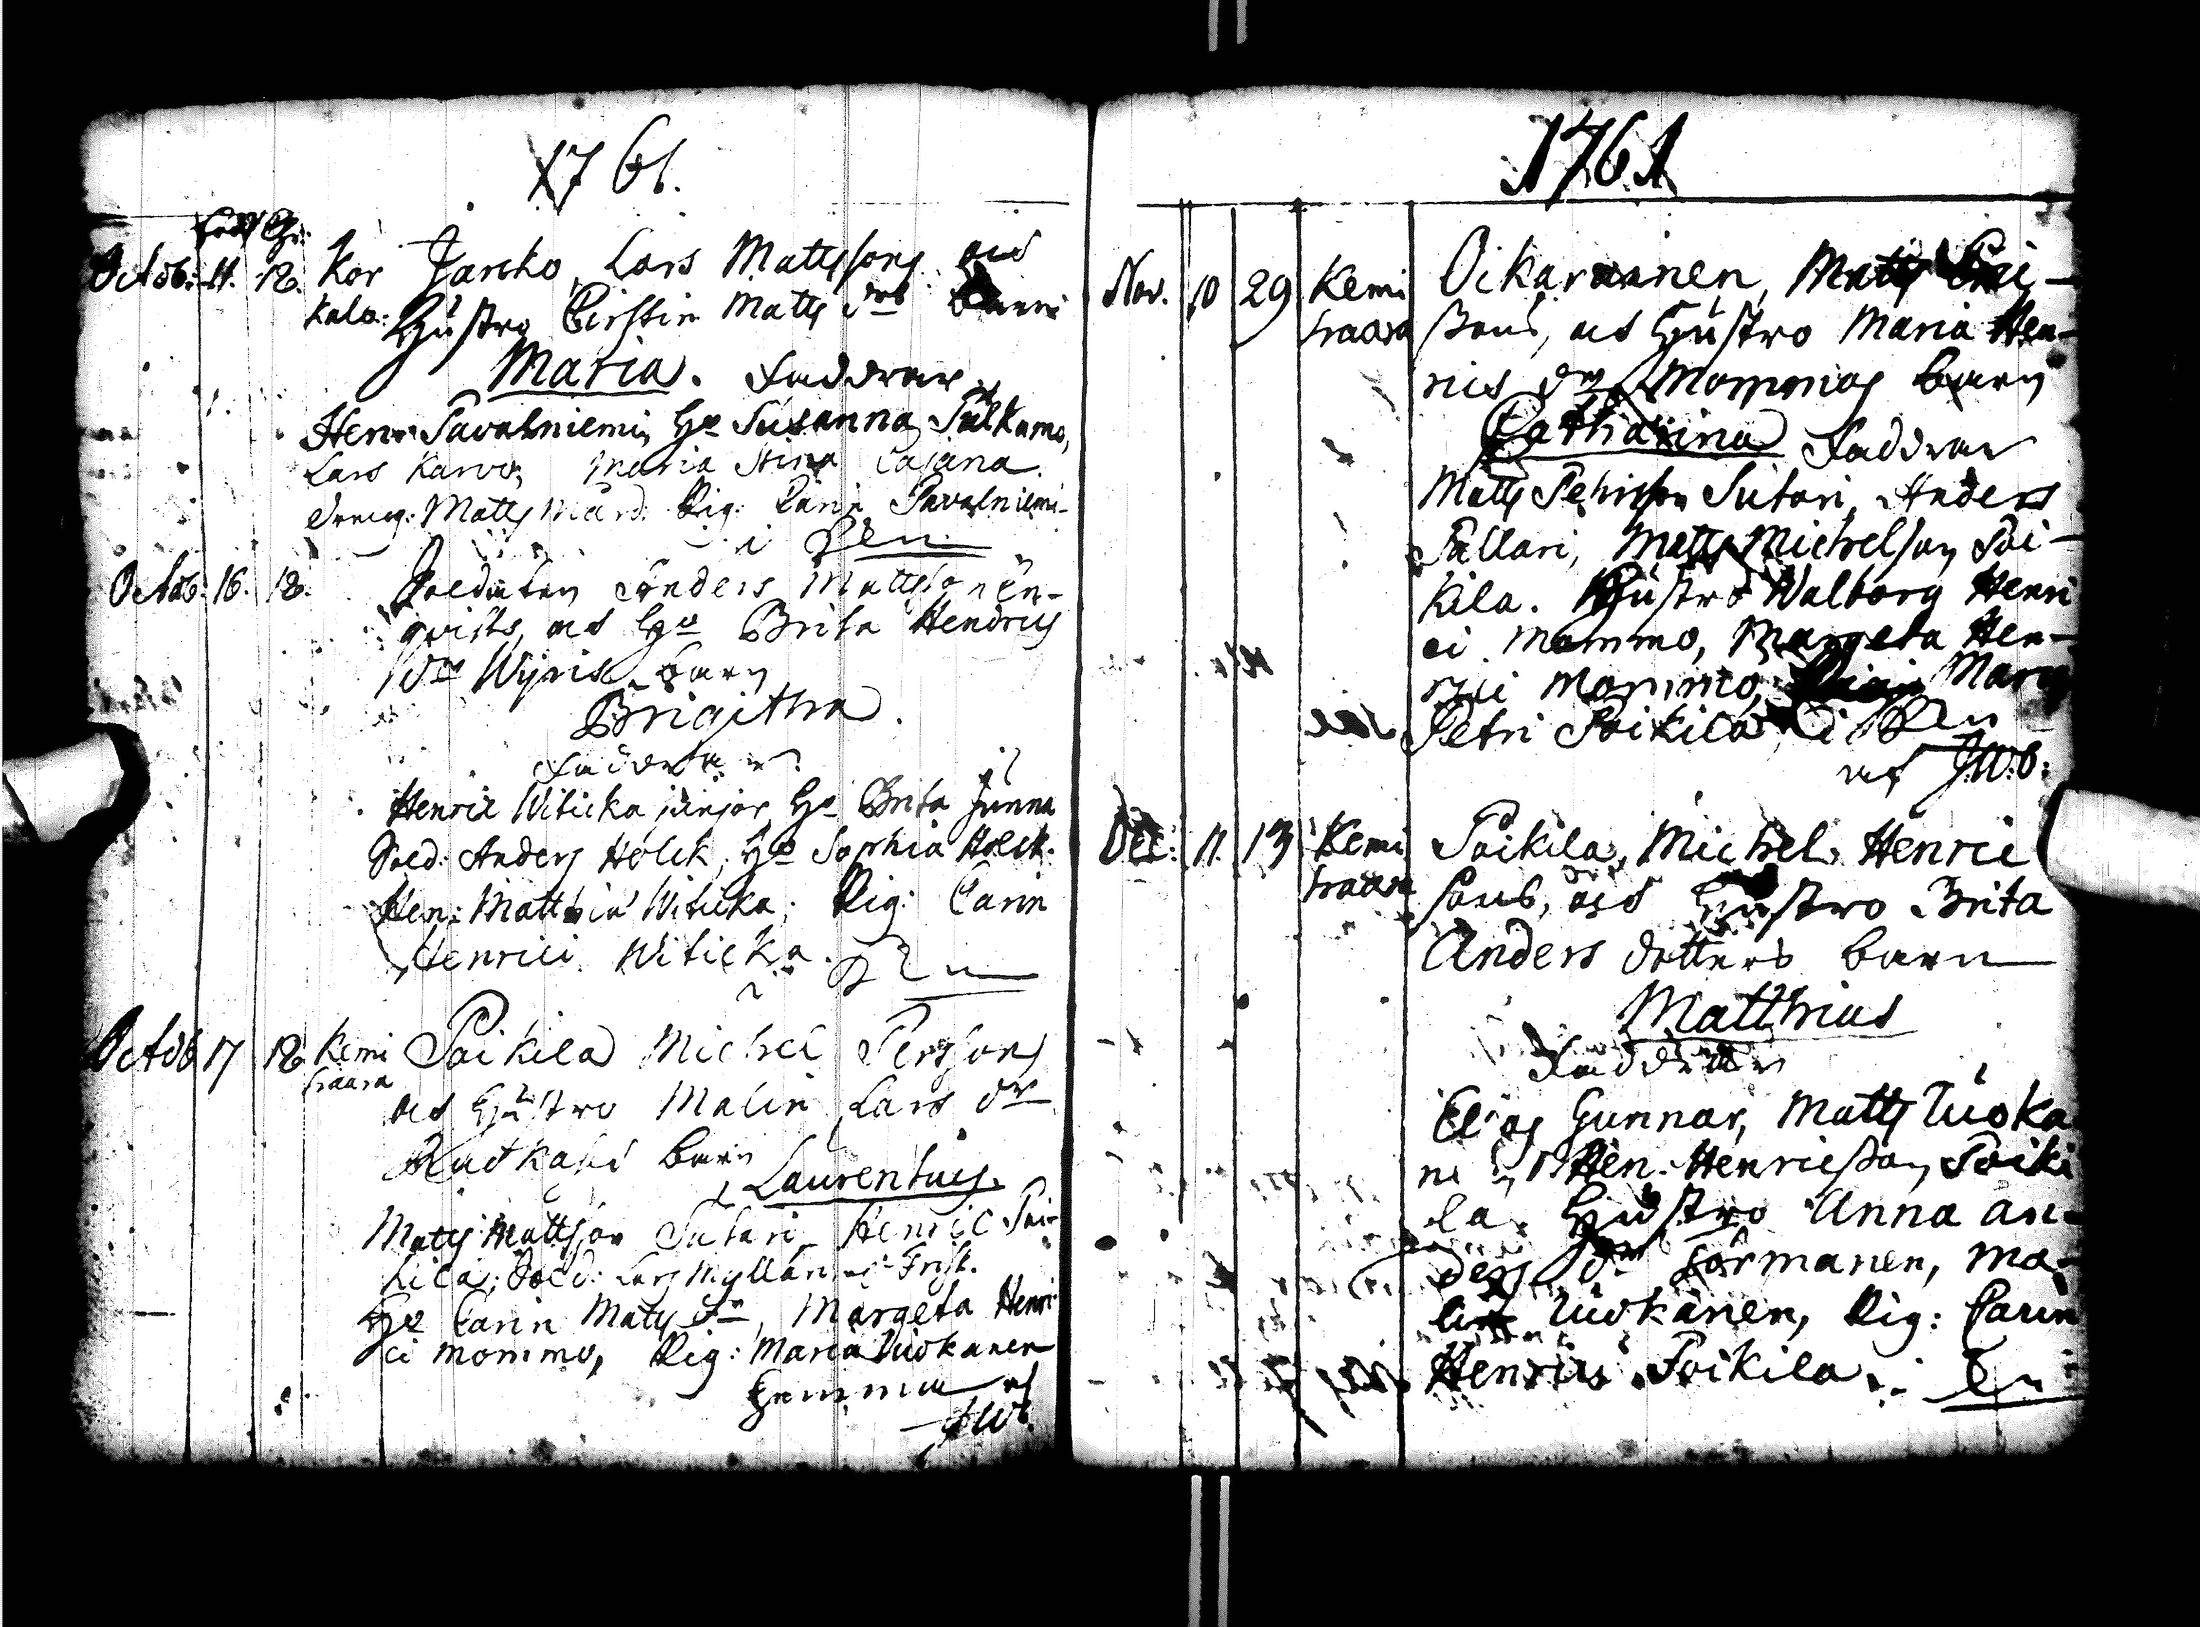 1761.
Född Chr:
Octob: 11. 18. Kor Jarcko, Lars Mattssons och
kala: Hustro Cirstin Matts drs barn
Maria. Faddrar
Henr Pavalniemi, Ho Susanna Palkama,
Lars Karvo, Maria Stina Cajana.
dreng: Matts Mård. Pig: Carin Pavalniemi
Octob. 16. 18. Soldaten Anders Mattss
qvists, och Ho Brita Hendrics
drs Wijrick barn
Brigitha.
Faddrar
Henric Witicka junior, Ho Brita Junna
Sold: Anders Holck, Ho Sophia Holck.
Hen: Matthiæ Witicka, Pig: Carin
Henrici Witicka.
Octob 17 18 Kemi Poikila Michel Perssons
traara och Hustro Malin Lars drs
barn
Laurentius.
Matts Mattsson Sutari, Henric Poi-
kila, Sold: Lars Myllari
Ho Carin Matts dr, Margeta Henri-
ci Mommo, Pig: Maria Tuokanen
hemma af
JW.
1761
Nov. 10 29 Kemi Oikarainen, Matts
traara sons, och Hustro Maria Hen-
rics drs Mommos barn
Catharina Faddrar
Matts Pehrsson Sutari, Anders
Pallari, Matts Michelson Poi-
kila. Hustro Walborg Henri
ci Mommo, Margeta Hen-
rici Mommo, Marg
Petri Poikila
af J.W.b:
Dec: 11. 13 Kemi Poikila, Michel Henric
traara sons, och Hustro Brita
Anders dotters barn
Matthias
Faddrar
Elias Gunnar, Matts Tuoka
ne, Hen. Henricsson Poiki
la. Hustro Anna An-
ders dr Körmanen, Ma-
lin Tuokanen, Pig: Carin
Henrici Poikila.